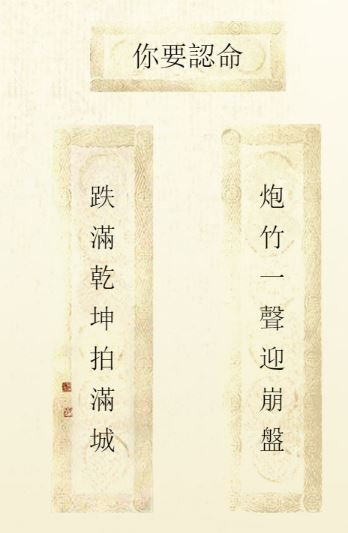 你要認命
炮竹一聲迎崩盤
跌滿乾坤拍滿城